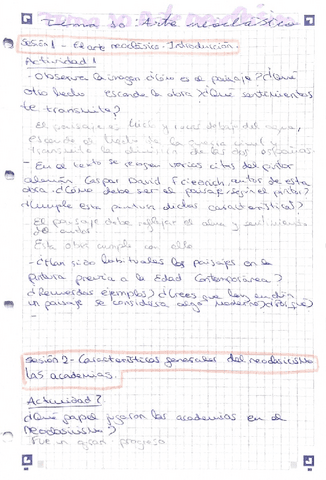 Tema 10: Arte neoclásico
Sesión 1 - El arte neoclásico. Introducción.
Actividad 1
- Observa la imagen ¿Cómo es el paisaje? ¿Qué
otro hecho esconde la obra? ¿Qué sentimientos
te transmite?
El paisaje es
- En el texto se recogen varias citas del pintor
alemán Caspar David Friedrich, autor de esta
obra. ¿Cómo debe ser el paisaje según el pintor?
¿Cumple esta pintura dichas características?
El paisaje debe reflejar el alma y sentimiento
del autor.
Esta obra cumple con ello
- ¿Han sido habituales los paisajes en la
pintura previa a la Edad Contemporánea?
¿Recuerdas ejemplos? ¿Crees que hoy en día
un paisaje se considera algo moderno? ¿Por qué?
-
Sesión 2 - Características generales del neoclasicismo
las academias.
Actividad 2
¿Qué papel jugaron las academias en el
Neoclasicismo?
Fue un gran progreso